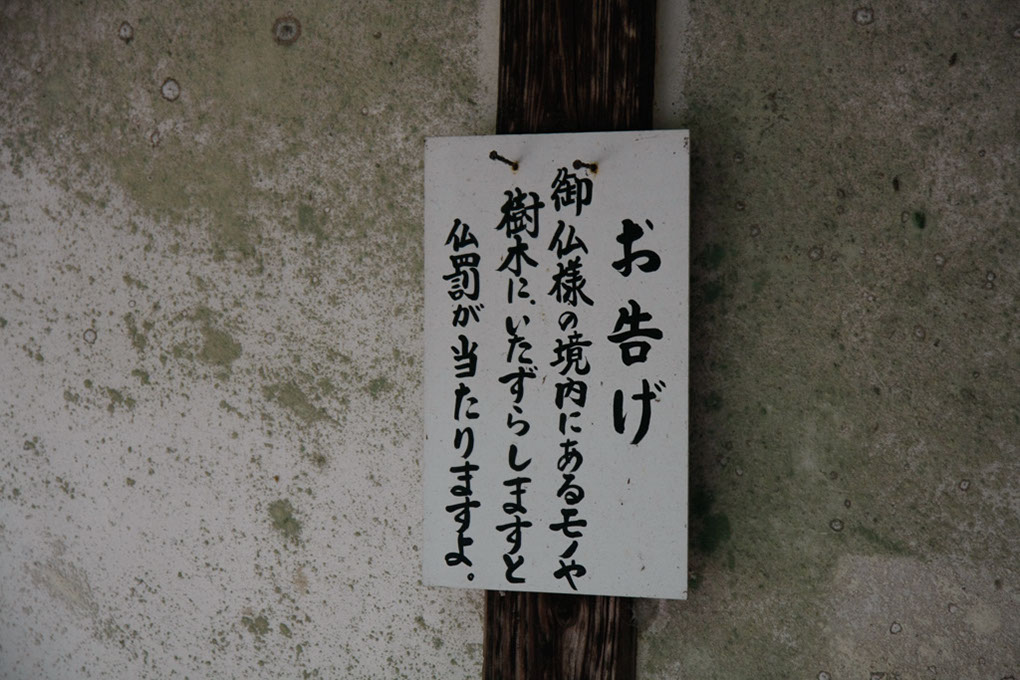 お告げ
御仏様の境内にあるモノや
樹木に、いたずらしますと
仏罰が当たりますよ。